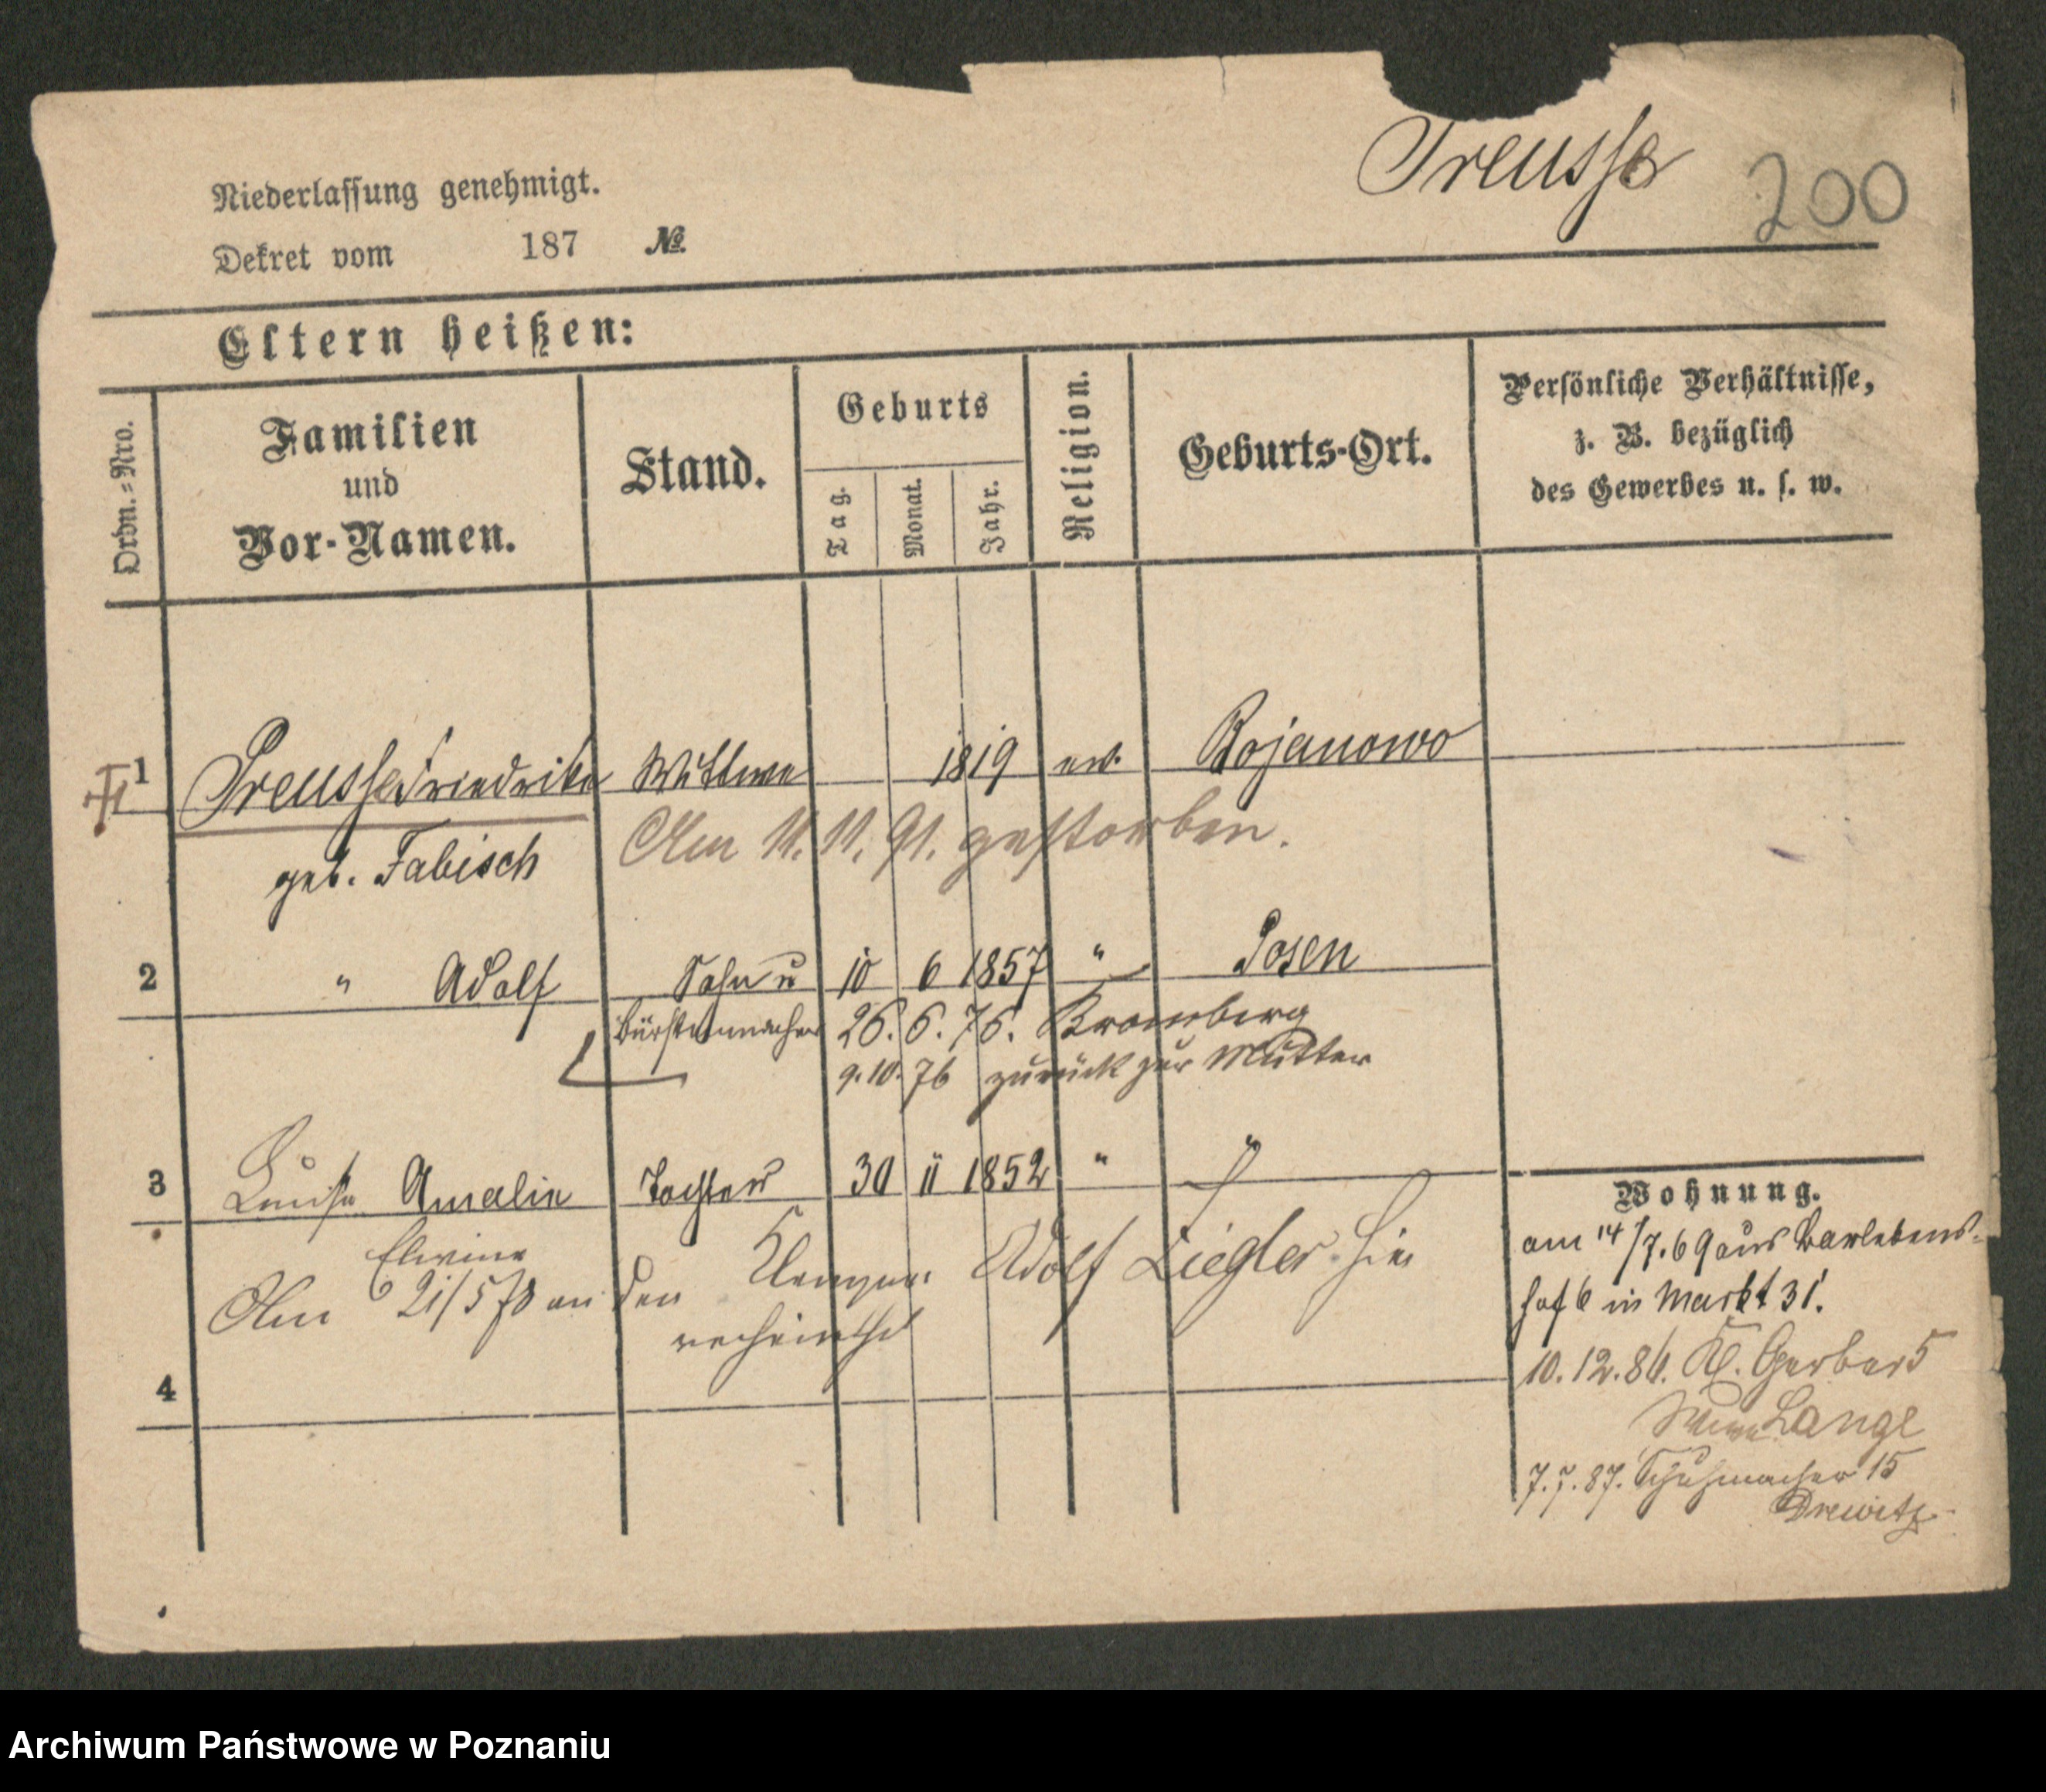 Preusse 200
Niederlassung genehmigt.
Dekret vom 187 №
Eltern heißen:
Ordn.=Nro.
Familien
und
Vor-Namen.
Stand.
Geburts
Tag.
Monat.
Jahr.
Religion.
Geburts-Ort.
Persönliche Verhältnisse,
z. B. bezüglich
des Gewerbes u. s. w.
1 Preusse Friedrike Wittwe 1819 ev. Bojanowo
geb. Fabisch
Am 11. 11. 91. gestorben.
2 " Adolf Sohn u 10 6 1857 " Posen
Bürstenmacher 26. 6. 76. Bromberg
9. 10. 76 zurück zur Mutter
3 Louise Amalie Tochter 30 11 1852 " "
Elwine
Am 21/5 78 an den Klempner Adolf Ziegler hier
verheirathet
4
Wohnung.
am 14/7. 69 aus Barlebens-
hof 6 in Markt 31.
10. 12. 86. Kl. Gerber 5
Wwe Lange
7. 7. 87. Schuhmacher 15
Drewitz
Archiwum Państwowe w Poznaniu